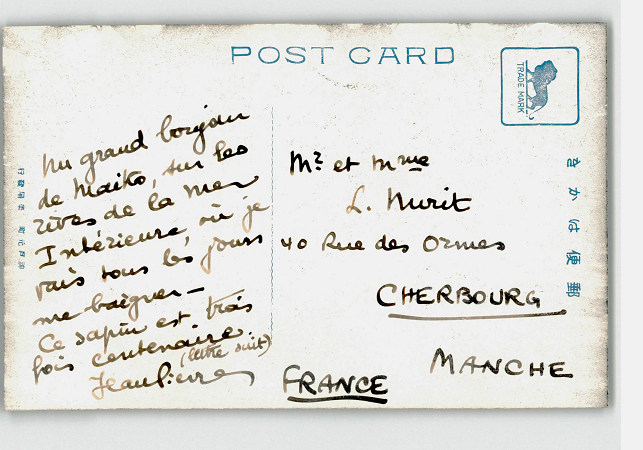 POST CARD
TRADE MARK
Un grand bonjour
de Maiko, sur les
rives de la Mer
Intérieure, où je
vais tous les jours
me baigner –
Ce sapin est trois
fois centenaire.
(lettre suit)
Jean Pierre
Mr et Mme
L. Nurit
40 Rue des Ormes
CHERBOURG
MANCHE
FRANCE
きかは便郵